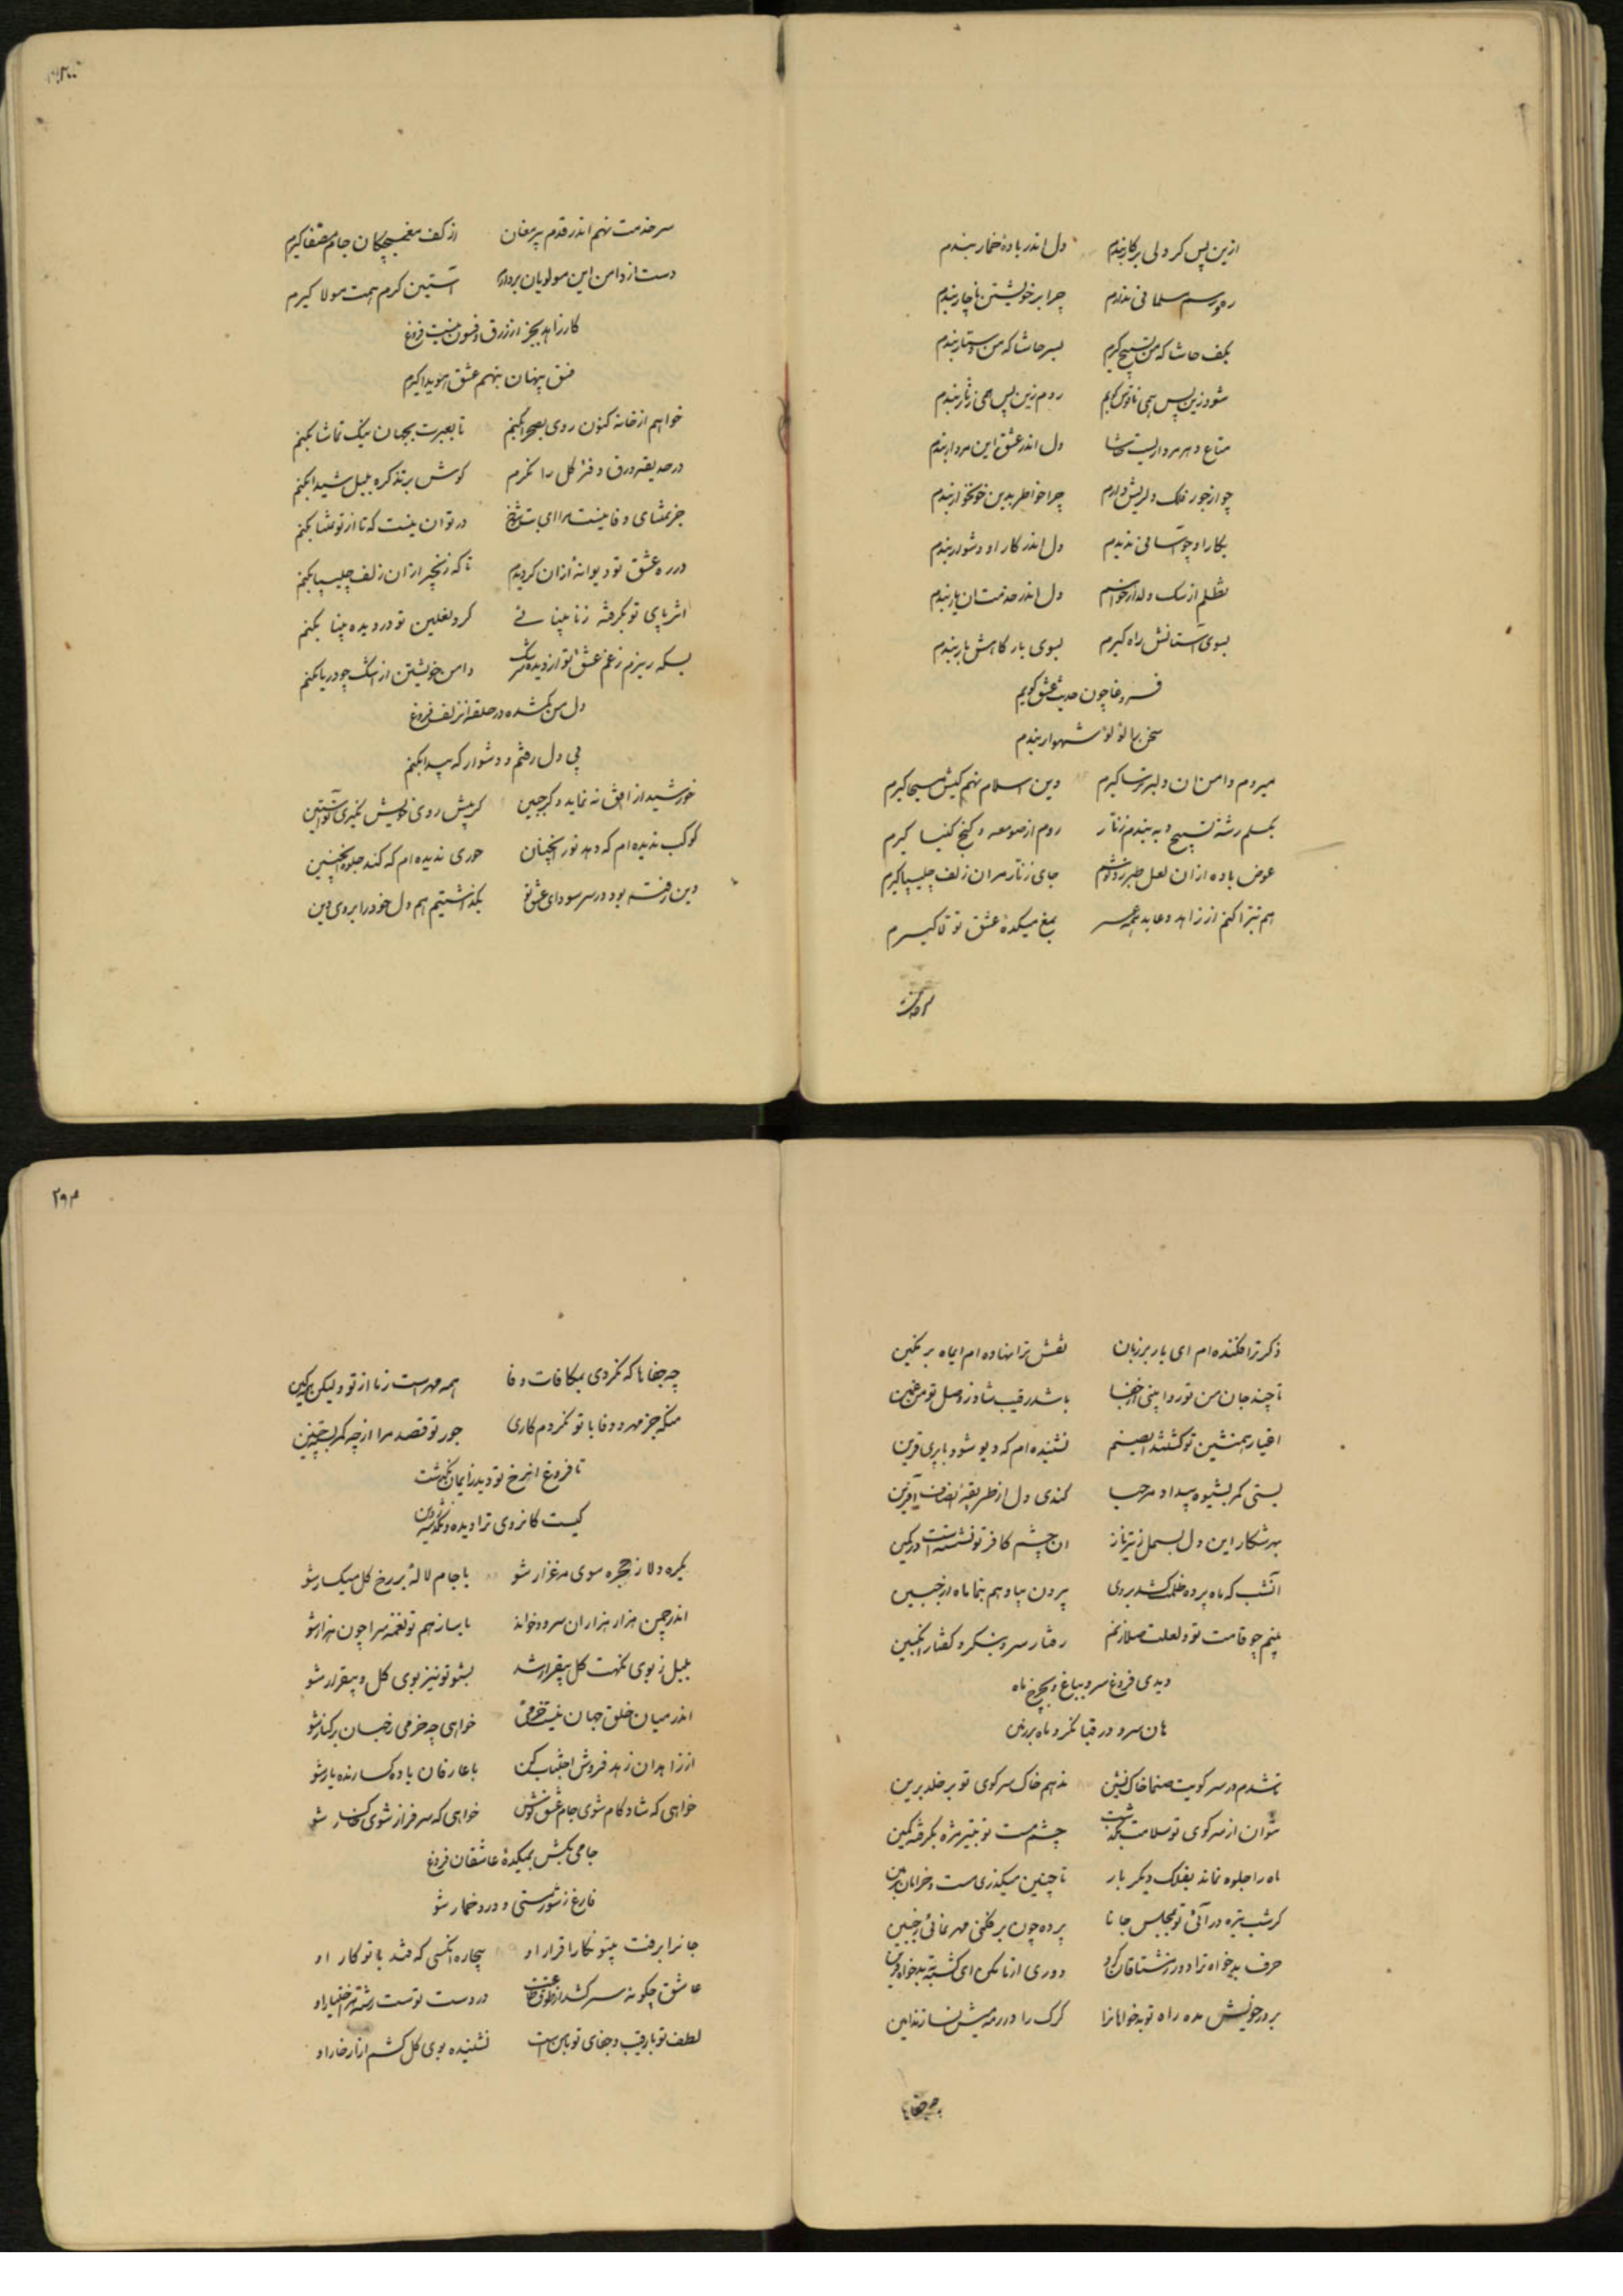 ازین پس کر دلی برکار بندم دل اندر باده خمار بندم
ره و رسم مسلمانی ندارم چرا بر خویشتن ناچار بندم
بکف حاشا که من تسبیح گیرم بسر حاشا که من دستار بندم
شود زین پس همی ناقوس رویم زین پس همی زنار بندم
متاع دهر مرداریست حاشا دل اندر عشق این مردار بندم
چو از جور فلک دلریش دارم چرا خاطر بدین خونخوار بندم
بکار او چو آسانی ندیدم دل اندر کار او دشوار بندم
تظلم از سک دلدار خواهم دل اندر خدمت ان یار بندم
بسوی آستانش راه گیرم بسوی بارگاهش بار بندم
فروغا چون حدیث عشق گویم
سخن با لؤلؤ شهوار بندم
میروم دامن ان دلبر ترسا گیرم دین اسلام نهم کیش مسیحا گیرم
بکسلم رشته تسبیح و به بندم زنار روم از صومعه و کنج کلیسا گیرم
عوض باده ازان لعل جای زنار سر ان زلف چلیپا گیرم
هم تبرا کنم از زاهد و عابد همه عمر بمغ میکده عشق تولا گیرم
سر خدمت
۲۰۰
سر خدمت نهم اندر قدم پیر مغان از کف مغبچکان جام مصفا گیرم
دست از دامن این مولویان بردارم آستین کرم همت مولا گیرم
کار زاهد بجز از زرق و فسون نیست فروغ
فسق پنهان بنهم عشق هویدا گیرم
خواهم از خانه کنون روی بصحرا بکنم تا بعبرت بجهان نیک تماشا بکنم
در حدیقه ورق دفتر گل را نگرم گوش بر تذکره بلبل شیدا بکنم
جز تمنای وفا نیست مرا ای بت شوخ در توان نیست که تا از تو تمنا بکنم
در ره عشق تو دیوانه ازان گردیدم تا که زنجیر ازان زلف چلیپا بکنم
اثر پای تو بگرفته ز نابینائی گرد نعلین تو در دیده بینا بکنم
بسکه ریزم ز غم عشق تو از دیده سرشک دامن خویشتن از اشک چو دریا بکنم
دل من گمشده در حلقه ان زلف فروغ
پی دل رفتم و دشوار که پیدا بکنم
خورشید از افق نه نماید دگر جبین گر پیش روی خویش نگیری تو آستین
کوکب ندیده ام که دهد نور انچنان حوری ندیده ام که کند جلوه اینچنین
دین رفته بود در سر سودای عشق تو بگذاشتیم هم دل خود را بروی دین
ذکر ترا فکنده ام ای یار بر زبان نقش ترا نهاده ام ایماه بر نگین
تا چند جان من تو روا بینی از جفا باشد رقیب شاد ز وصل تو من غمین
اغیار همنشین تو گشتند ای صنم نشنیده ام که دیو شود با پری قرین
بستی کمر بشیوه بیداد مرحبا کندی دل از طریقه انصاف آفرین
بهر شکار این دل بسمل ز تیر ناز ان چشم کافر تو نشسته است در کمین
آنشب که ماه پرده ظلمت کشد بروی بیرون بیا و هم بنما ماه از جبین
بینم چو قامت تو و لعلت صلا زنم رفتار سرو بنگر و گفتار انگبین
دیدی فروغ سرو بباغ و بچرخ ماه
هان سرو در قبا نگر و ماه بر زمین
تا شدم در سر کویت صنما خاک نشین ندهم خاک سر کوی تو بر خلد برین
نتوان از سر کوی تو سلامت بگذشت چشم مست تو بتیر مژه بگرفته کمین
ماه را جلوه نماند بفلک دیگر بار تا چنین میگذری مست و خرامان بزمین
گر شب تیره در آئی تو بمجلس جانا پرده چون بر فکنی مهر نمائی ز جبین
حرف بدخواه ترا دور ز مشتاقان کرد دوری از ما مکن ای گشته به بدخواه قرین
بر در خویش مده راه تو بدخواهانرا گرگ را در رمه میش نسازند امین
چه جفاها
۲۰۱
چه جفاها که نکردی بمکافات وفا همه مهر است ز ما از تو ولیکن همه کین
منکه جز مهر و وفا با تو نکردم کاری جور تو قصد مرا از چه کمر بسته چنین
تا فروغ انرخ تو دید ز ایمان بگذشت
کیست کانروی ترا دیده و نگذشته ز دین
یکره دلا ز حجره سوی مرغزار شو با جام لاله بر رخ گل میگسار شو
اندر چمن هزار هزاران سرود خواند با ساز هم تو نغمه سرا چون هزار شو
بلبل ز بوی نکهت گل بیقرار شد بشنو تو نیز بوی گل و بیقرار شو
اندر میان خلق جهان نیست خرمی خواهی چه خرمی ز جهان بر کنار شو
از زاهدان زهد فروش اجتناب کن با عارفان باده گسارنده یار شو
خواهی که شادکام شوی جام عشق نوش خواهی که سرفراز شوی خاکسار شو
جامی بکش بمیکده عاشقان فروغ
فارغ ز شور مستی و درد خمار شو
جانرا برفت بیتو نگارا قرار او بیچاره انکسی که فتد با تو کار او
عاشق چگونه سر کشد از طوق طاعتت در دست توست رشته اختیار او
لطف تو با رقیب و جفای تو با من است نشنیده بوی گل کشم ازار خار او